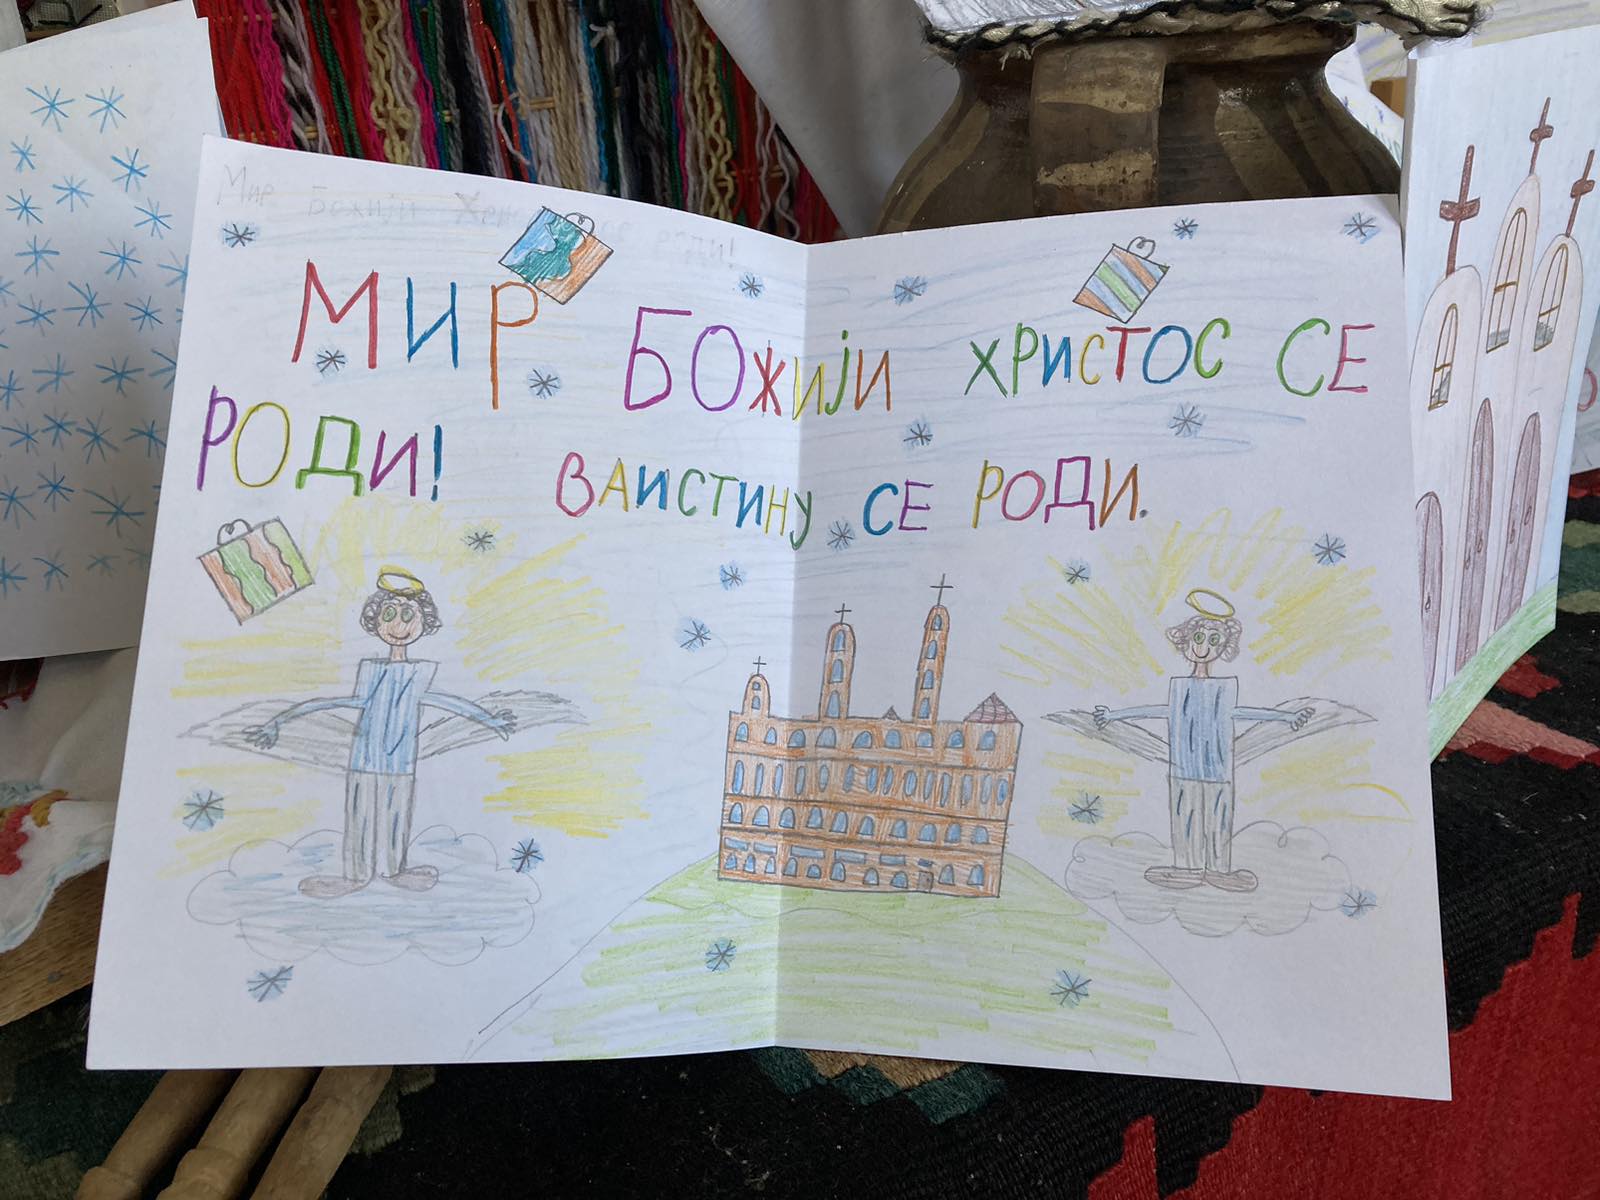 Мир Божији Христос се роди!
МИР БОЖИЈИ ХРИСТОС СЕ
РОДИ! ВАИСТИНУ СЕ РОДИ.